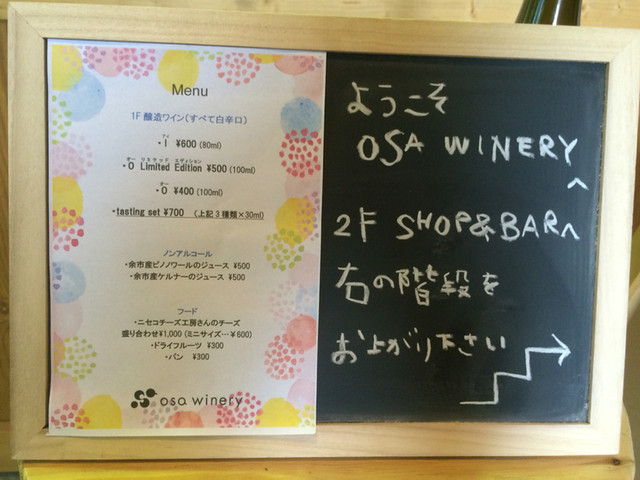 Menu
1F 醸造ワイン(すべて白辛口)
アイ
・I ¥600 (80ml)
オー リミテッド エディション
・O Limited Edition ¥500 (100ml)
オー
・O ¥400 (100ml)
・tasting set ¥700 (上記3種類×30ml)
ノンアルコール
・余市産ピノノワールのジュース ¥500
・余市産ケルナーのジュース ¥500
フード
・ニセコチーズ工房さんのチーズ
盛り合わせ¥1,000 (ミニサイズ…¥600)
・ドライフルーツ ¥300
・パン ¥300
osa winery
ようこそ
OSA WINERY
へ
2F SHOP&BARへ
右の階段を
お上がり下さい